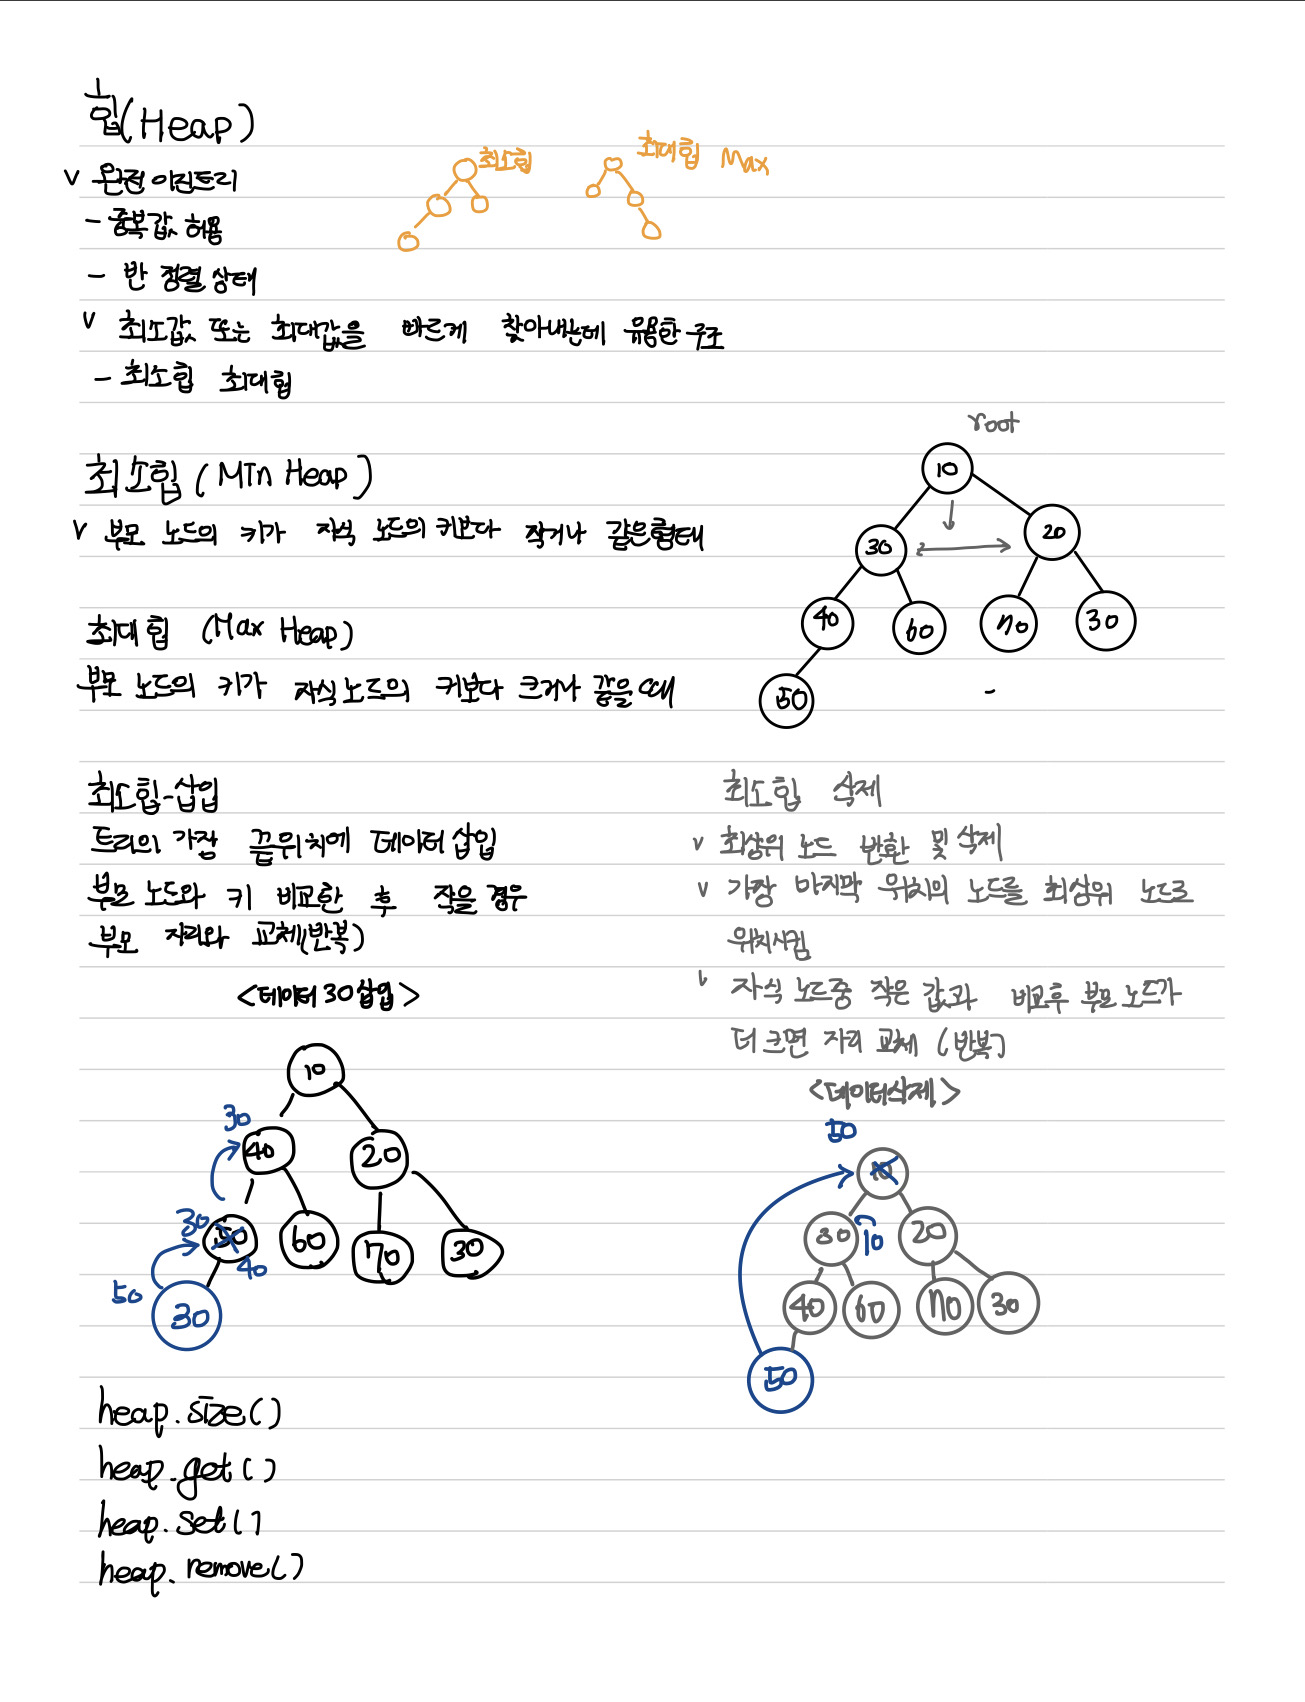 힙(Heap)
최소힙
최대힙 Max
v 완전이진트리
- 중복값 허용
- 반 정렬 상태
v 최소값 또는 최대값을 빠르게 찾아내는데 유용한 구조
- 최소힙 최대힙
root
최소힙 (Min Heap)
10
v 부모 노드의 키가 자식 노드의 키보다 작거나 같은형태
30
20
최대힙 (Max Heap)
40
60
70
30
부모 노드의 키가 자식노드의 키보다 크거나 같을 때
50
최소힙-삽입
트리의 가장 끝위치에 데이터 삽입
부모 노드와 키 비교한 후 작을 경우
부모 자리와 교체(반복)
<데이터 30 삽입>
10
30
40
20
30
50
60
70
30
40
50
30
heap.size()
heap.get()
heap.set()
heap.remove()
최소힙 삭제
v 최상위 노드 반환 및 삭제
v 가장 마지막 위치의 노드를 최상위 노드로
위치시킴
v 자식 노드중 작은 값과 비교후 부모 노드가
더 크면 자리 교체 (반복)
<데이터삭제>
50
10
30
10
20
40
60
70
30
50